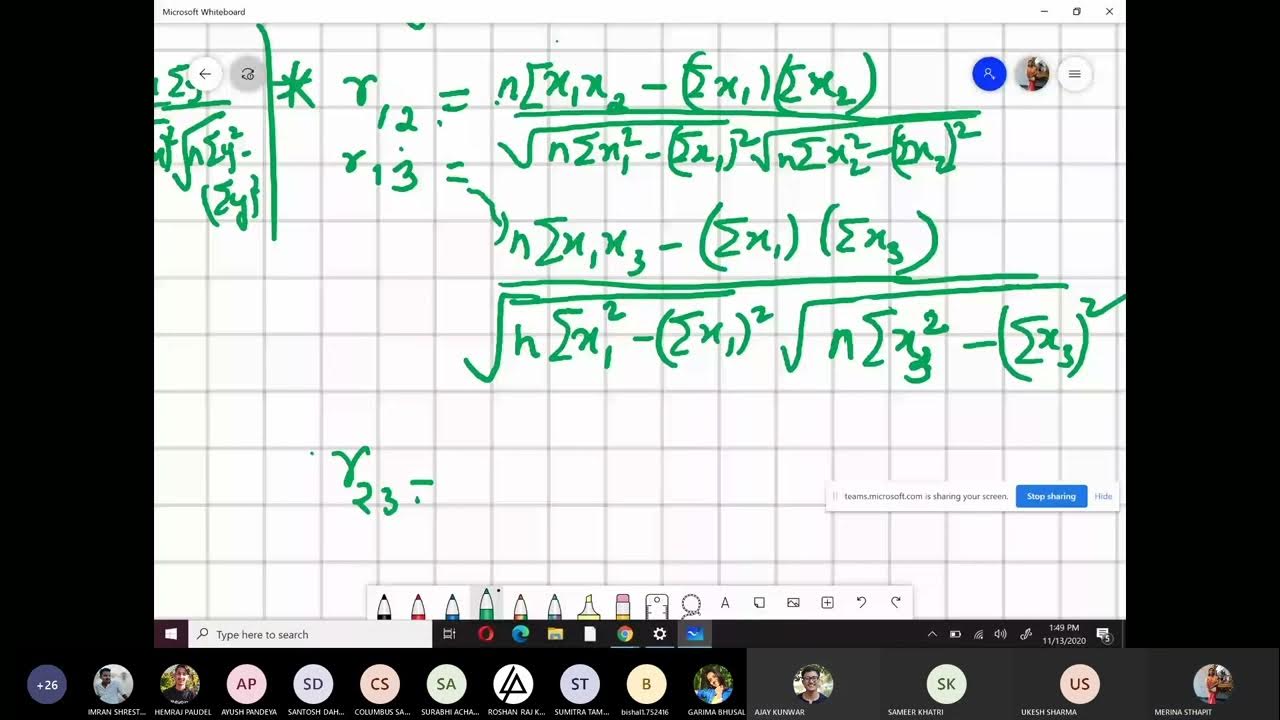 Microsoft Whiteboard
r₁₂ = nΣx₁x₂ − (Σx₁)(Σx₂)
√nΣx₁² − (Σx₁)² √nΣx₂² − (Σx₂)²
√nΣy² −
(Σy)²
r₁₃ =
nΣx₁x₃ − (Σx₁) (Σx₃)
√nΣx₁² − (Σx₁)² √nΣx₃² − (Σx₃)²
r₂₃ =
teams.microsoft.com is sharing your screen. Stop sharing Hide
Type here to search
1:49 PM
11/13/2020
5
+26 AP SD CS SA ST B SK US
IMRAN SHREST... HEMRAJ PAUDEL AYUSH PANDEYA SANTOSH DAH... COLUMBUS SA... SURABHI ACHA... ROSHAN RAJ K... SUMITRA TAM... bishal1.752416 GARIMA BHUSAL AJAY KUNWAR SAMEER KHATRI UKESH SHARMA MERINA STHAPIT